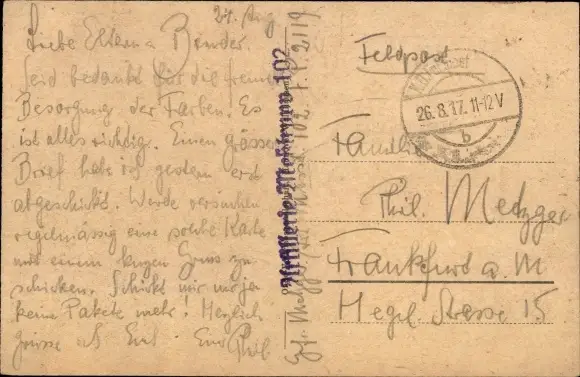 24. Aug
Liebe Eltern u Bruder.
Seid bedankt für die
Besorgung der Farben. Es
ist alles richtig. Einen grösseren
Brief habe ich gestern erst
abgeschickt. Werde versuchen
regelmässig eine solche Karte
mit einem kurzen Gruss zu
schicken. Schickt mir nur ja
keine Pakete mehr! Herzlich
grüsse ich Euch. Euer Phil
Artillerie-Messtrupp 102
102 F.P. 2119
Feldpost
26.8.17. 11-12V
b
Familie
Phil. Metzger
Frankfurt a. M
Hegel Strasse 15